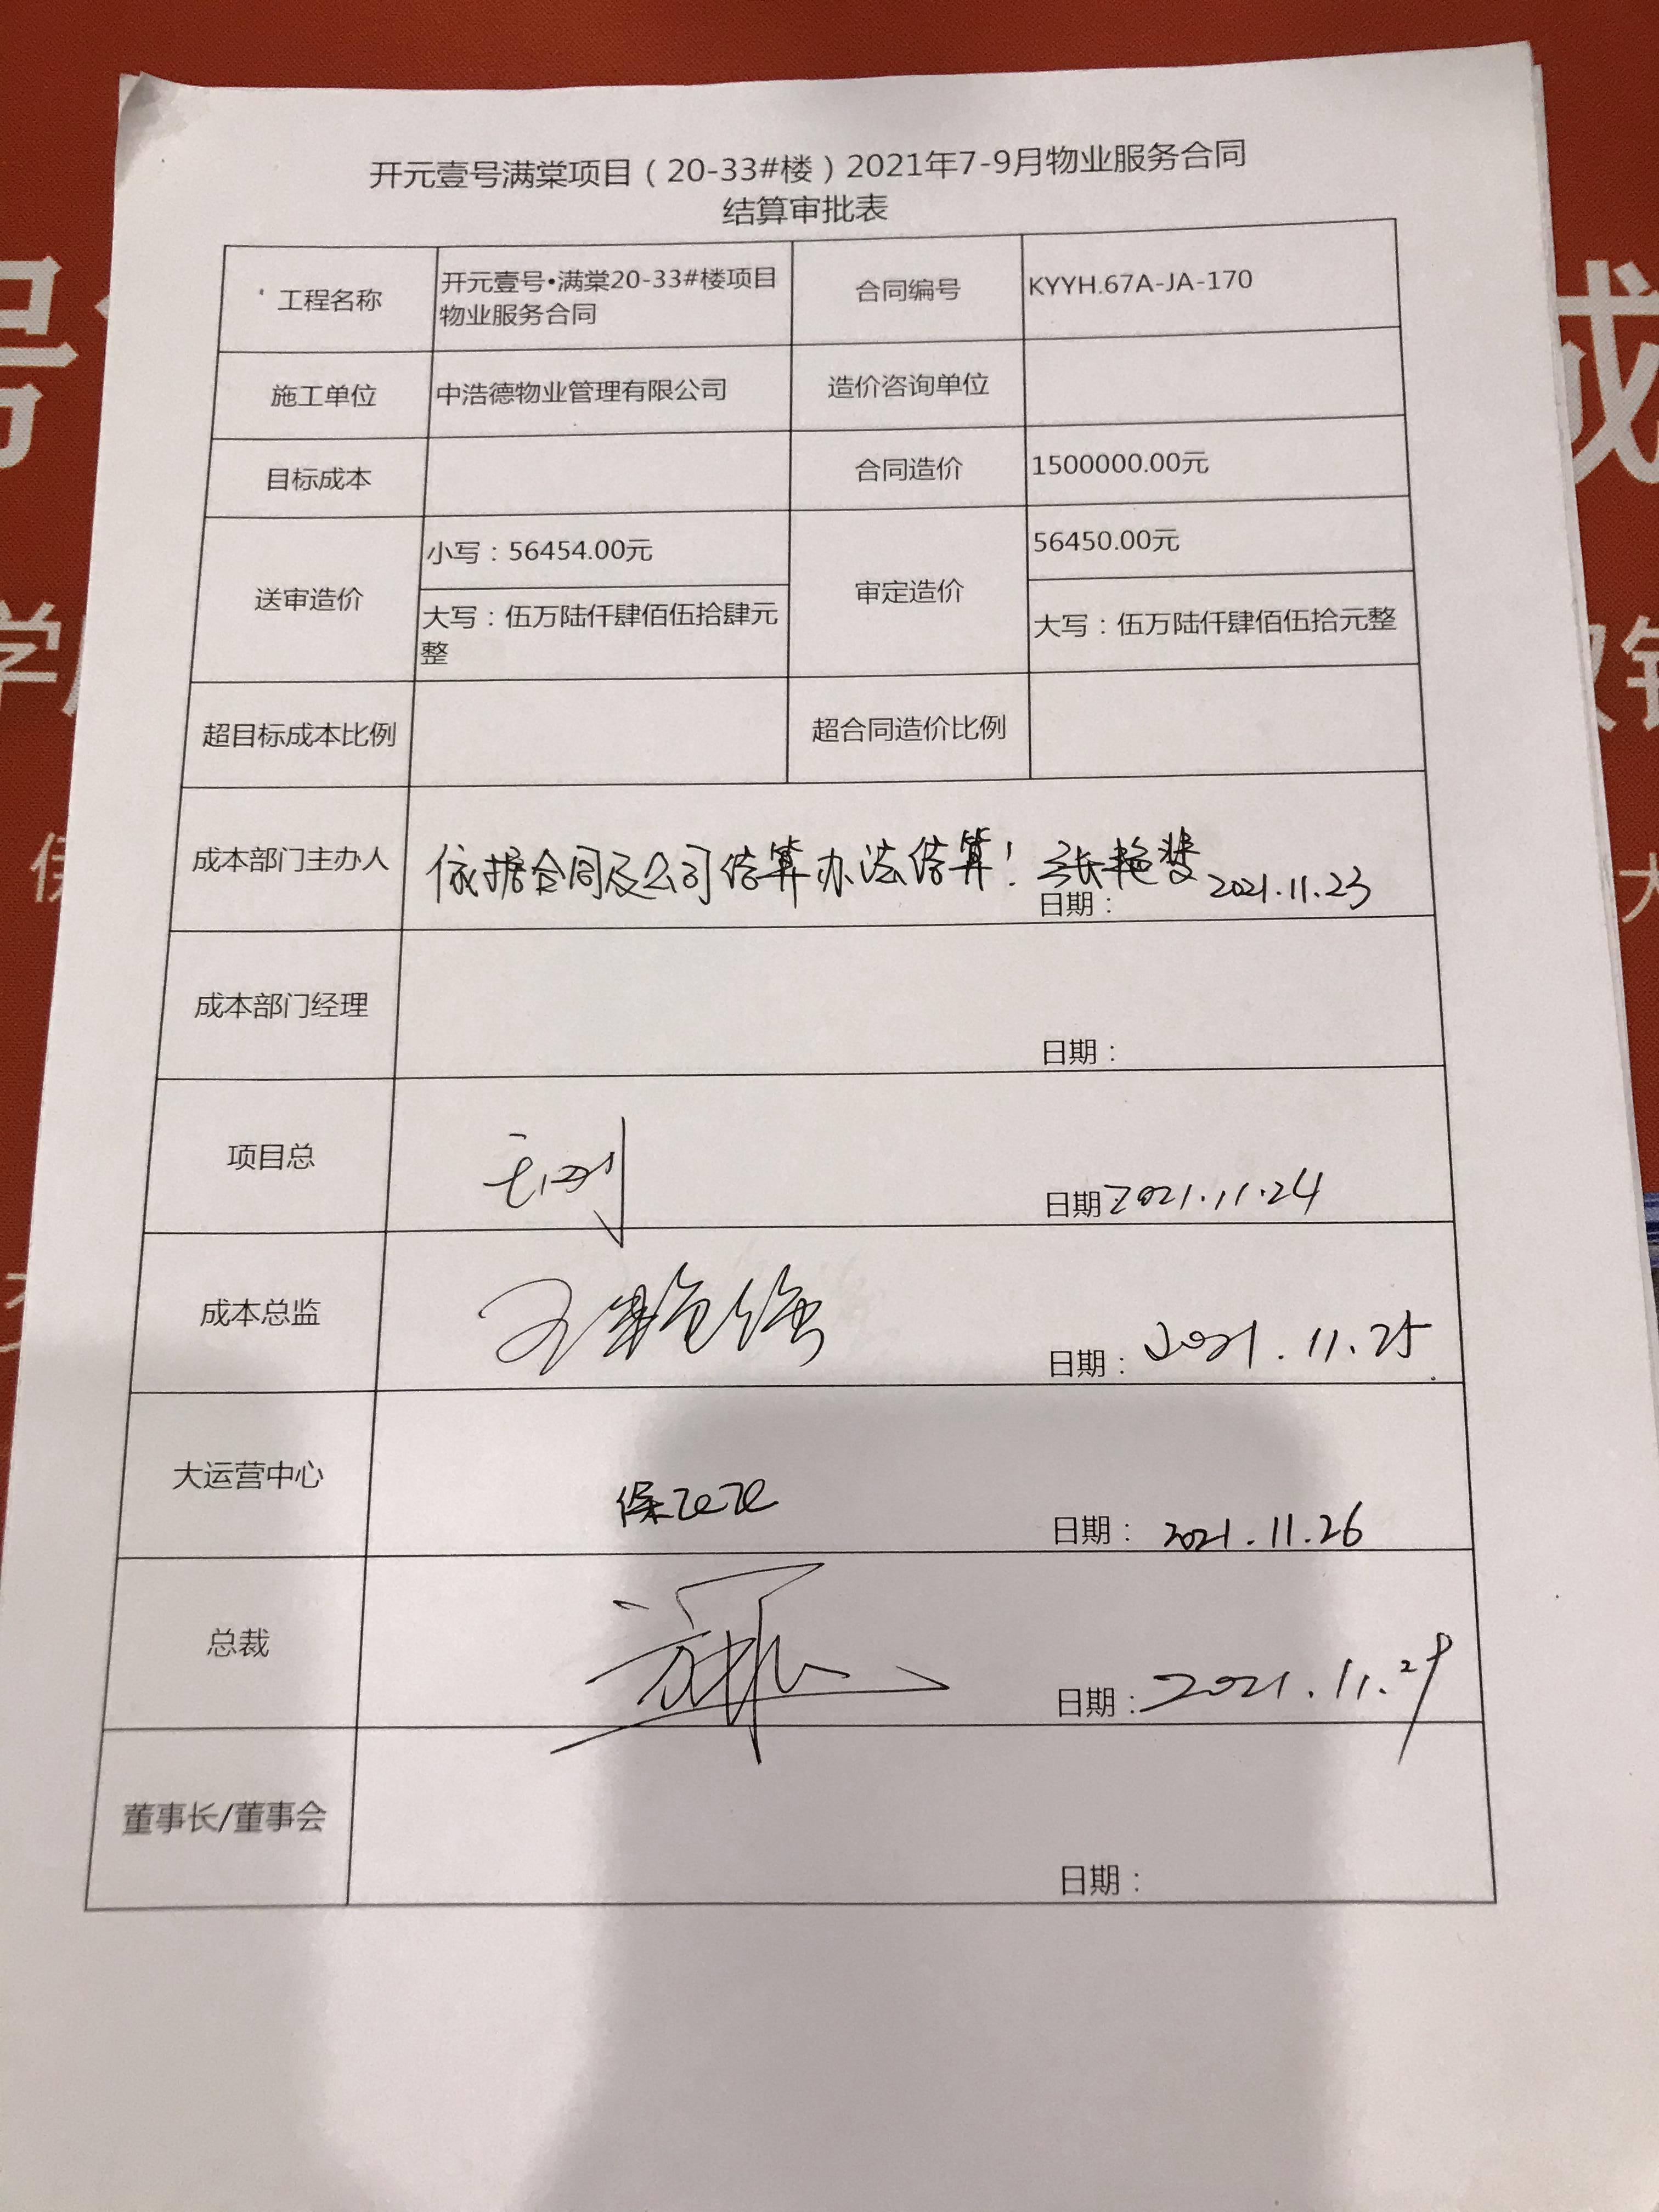 开元壹号满棠项目（20-33#楼）2021年7-9月物业服务合同
结算审批表
工程名称
开元壹号•满棠20-33#楼项目
物业服务合同
合同编号
KYYH.67A-JA-170
施工单位
中浩德物业管理有限公司
造价咨询单位
目标成本
合同造价
1500000.00元
送审造价
小写：56454.00元
大写：伍万陆仟肆佰伍拾肆元
整
审定造价
56450.00元
大写：伍万陆仟肆佰伍拾元整
超目标成本比例
超合同造价比例
成本部门主办人
依据合同及公司结算办法结算！张艳
日期：2021.11.23
成本部门经理
日期：
项目总
日期2021.11.24
成本总监
日期：2021.11.25
大运营中心
日期：2021.11.26
总裁
日期：2021.11.29
董事长/董事会
日期：